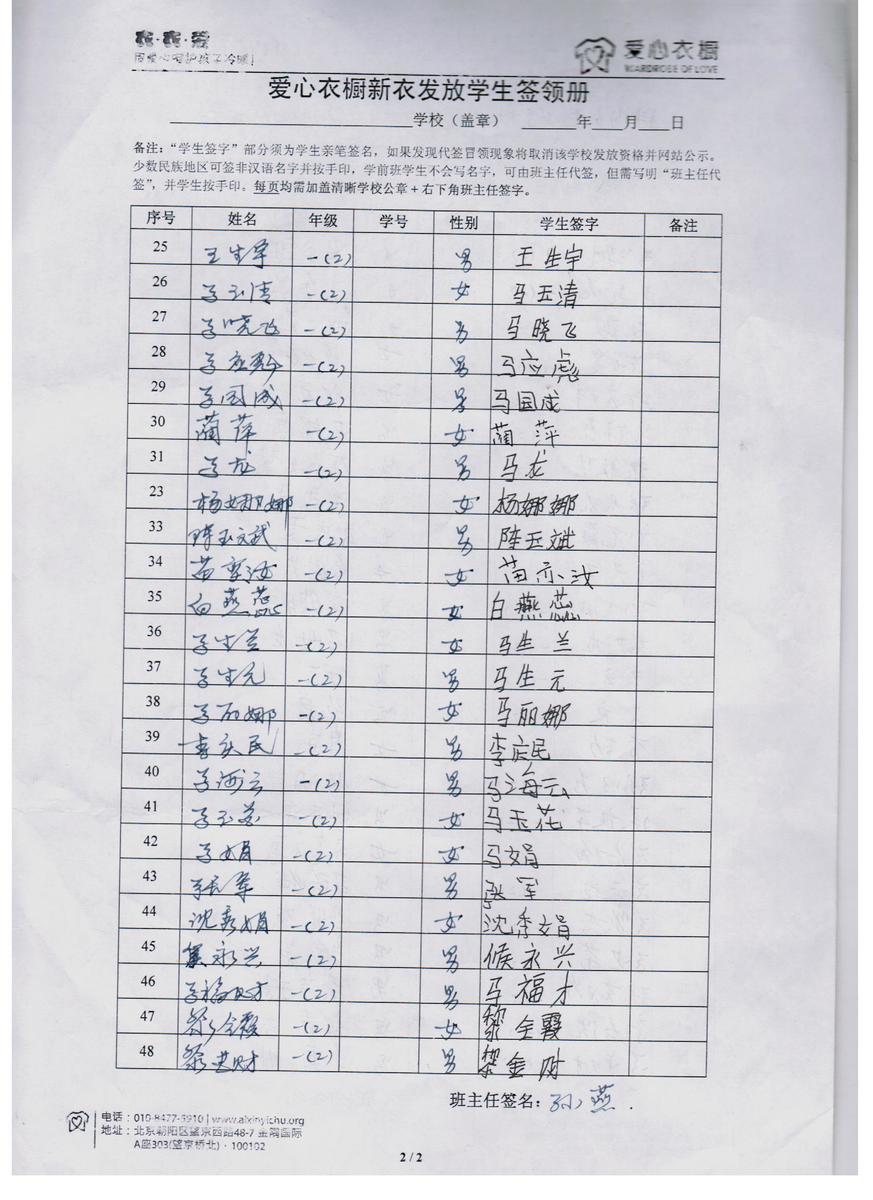 用爱心呵护孩子冷暖!
爱心衣橱
WARDROBE OF LOVE
爱心衣橱新衣发放学生签领册
学校（盖章） 年 月 日
备注：“学生签字”部分须为学生亲笔签名，如果发现代签冒领现象将取消该学校发放资格并网站公示。
少数民族地区可签非汉语名字并按手印，学前班学生不会写名字，可由班主任代签，但需写明“班主任代
签”，并学生按手印。每页均需加盖清晰学校公章+右下角班主任签字。
序号 姓名 年级 学号 性别 学生签字 备注
25 王生宇 一(2) 男 王生宇
26 马玉清 一(2) 女 马玉清
27 马晓飞 一(2) 男 马晓飞
28 马应彪 一(2) 男 马应彪
29 马国成 一(2) 男 马国成
30 蔺萍 一(2) 女 蔺萍
31 马龙 一(2) 男 马龙
23 杨娜娜 一(2) 女 杨娜娜
33 陈玉斌 一(2) 男 陈玉斌
34 一(2) 女 苗亦汝
35 白燕蕊 一(2) 女 白燕蕊
36 马生兰 一(2) 女 马生兰
37 马生元 一(2) 男 马生元
38 马丽娜 一(2) 女 马丽娜
39 李庆民 一(2) 男 李庆民
40 马海云 一(2) 男 马海云
41 一(2) 女 马玉花
42 马娟 一(2) 女 马娟
43 张军 一(2) 男 张军
44 沈秀娟 一(2) 女 沈秀娟
45 永兴 一(2) 男 候永兴
46 马福财 一(2) 男 马福才
47 一(2) 女 黎全霞
48 一(2) 男 黎金财
班主任签名：孙燕.
电话：010-8477-5910 | www.aixinyichu.org
地址：北京朝阳区望京西路48-7 金隅国际
A座303(望京桥北)·100102
2 / 2